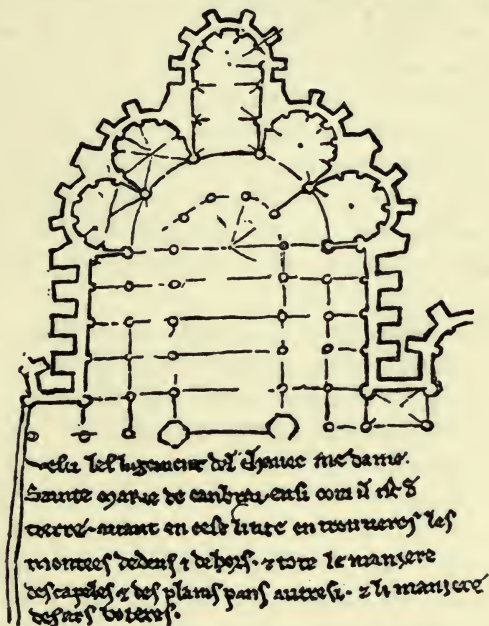 vesci lesligement del chavec me dame.
Sainte marie de canbrai ensi com il ist de
terre. avant en cest livre en trouveres les
montees dedens ⁊ dehors. ⁊ tote le maniere
des capeles ⁊ des plains pans autresi. ⁊ li maniere
des ars boteres.